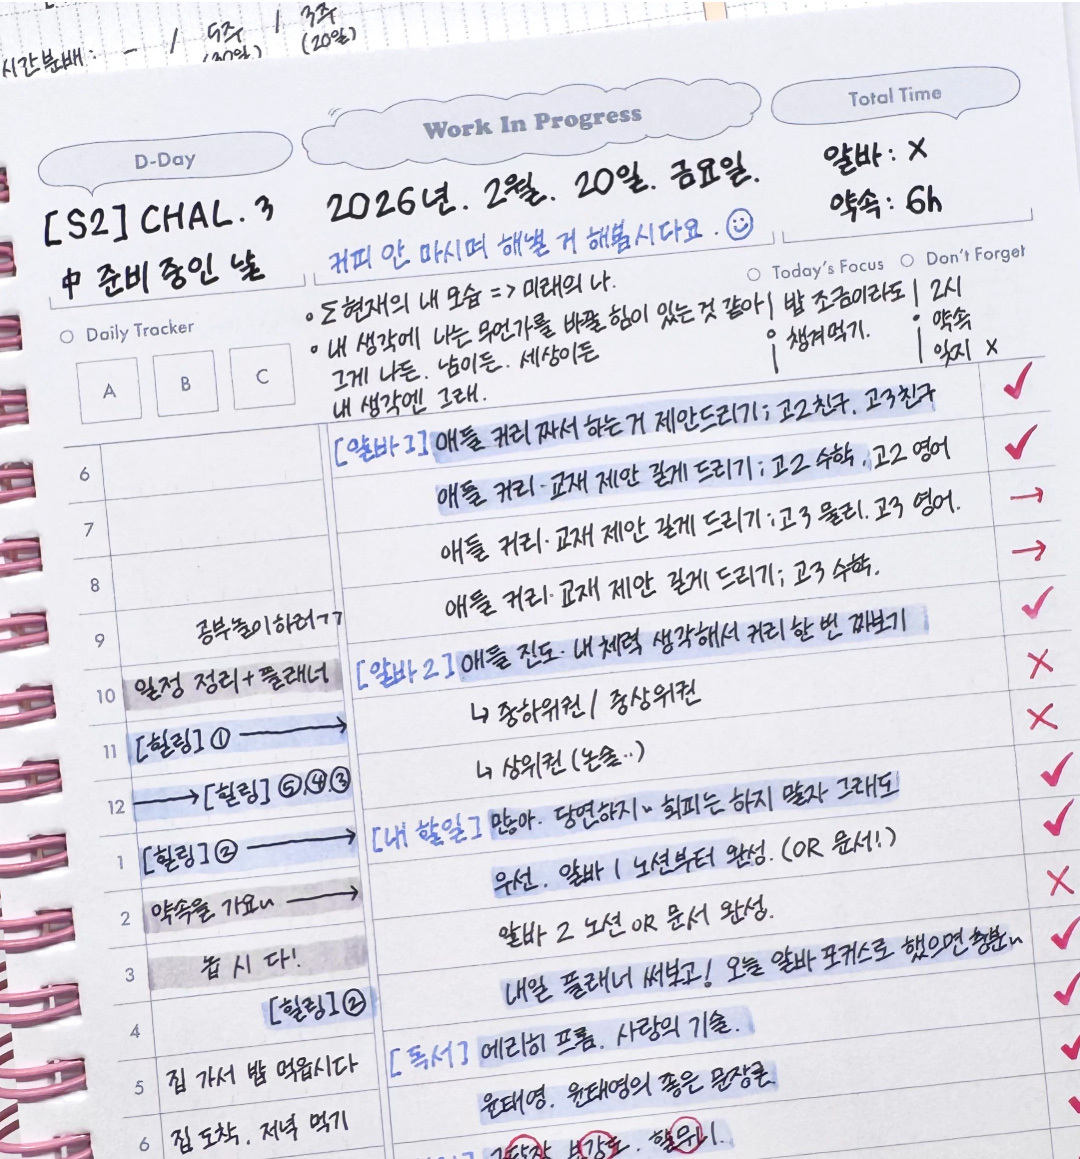 시간분배 : - / 5주 / 3주
(30일) (20일)
Work In Progress
D-Day
Total Time
[S2] CHAL. 3
中 준비 중인 날
2026년. 2월. 20일. 금요일.
커피 안 마시며 해낼 거 해봅시다요. ☺
알바 : X
약속 : 6h
Daily Tracker
A B C
• Σ현재의 내 모습 => 미래의 나.
• 내 생각에 나는 무언가를 바꿀 힘이 있는 것 같아
그게 나든. 남이든. 세상이든
내 생각엔 그래.
Today's Focus
밥 조금이라도
챙겨먹기.
Don't Forget
2시
약속
잊지 X
[알바 1] 애들 커리 짜서 하는 거 제안드리기 ; 고2친구. 고3친구 ✓
애들 커리·교재 제안 길게 드리기 ; 고2 수학. 고2 영어 ✓
애들 커리·교재 제안 길게 드리기 ; 고3 물리. 고3 영어. →
애들 커리·교재 제안 길게 드리기 ; 고3 수학. →
[알바 2] 애들 진도·내 체력 생각해서 커리 한 번 짜보기 ✓
↳ 중하위권 / 중상위권 X
↳ 상위권 (논술..) X
[내 할일] 많아. 당연하지~ 회피는 하지 말자 그래도 ✓
우선. 알바 1 노션부터 완성. (OR 문서!) ✓
알바 2 노션 OR 문서 완성. X
내일 플래너 써보고! 오늘 알바 포커스로 했으면 충분~ ✓
[독서] 에리히 프롬. 사랑의 기술. ✓
윤태영. 윤태영의 좋은 문장론 ✓
6
7
8
9 공부놀이하러ㄱㄱ
10 일정 정리 + 플래너
11 [힐링] ① →
12 → [힐링] ⑤,④,③
1 [힐링] ② →
2 약속을 가요~ →
3 놉시다!
4 [힐링] ②
5 집 가서 밥 먹읍시다
6 집 도착. 저녁 먹기